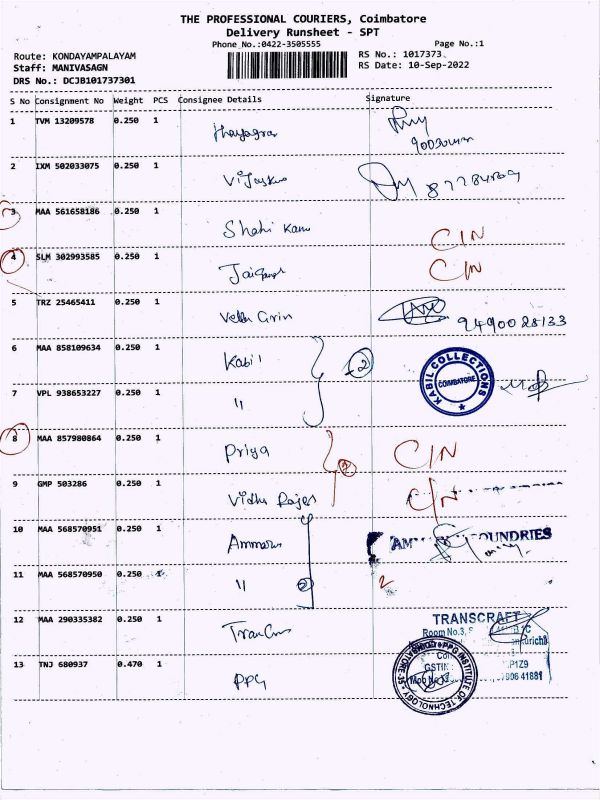 THE PROFESSIONAL COURIERS, Coimbatore
Delivery Runsheet - SPT
Phone No.:0422-3505555 Page No.:1
Route: KONDAYAMPALAYAM RS No.: 1017373
Staff: MANIVASAGN RS Date: 10-Sep-2022
DRS No.: DCJB101737301
S No Consignment No Weight PCS Consignee Details Signature
1 TVM 13209578 0.250 1
2 IXM 502033075 0.250 1
3 MAA 561658186 0.250 1 Shahi C/N
4 SLM 302993585 0.250 1 C/N
5 TRZ 25465411 0.250 1 9490028133
6 MAA 858109634 0.250 1 Kabil 2 KABIL COLLECTIONS COIMBATORE
7 VPL 938653227 0.250 1 "
8 MAA 857980864 0.250 1 Priya 2 C/N
9 GMP 503286 0.250 1 Vidhu Rajesh C/N
10 MAA 568570951 0.250 1 OUNDRIES
11 MAA 568570950 0.250 " 2 2
12 MAA 290335382 0.250 1 TRANSCRAFT
Room No.3,
GSTIN: P1Z9
41881
13 TNJ 680937 0.470 1 PPG PPG INSTITUTE OF TECHNOLOGY